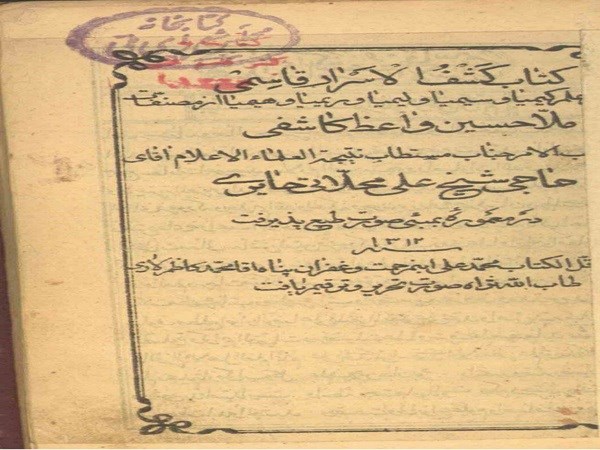 کتاب کشف الاسرار قاسمی
علم کیمیا و سیمیا و لیمیا و ریمیا و هیمیا از مصنفات
ملا حسین واعظ کاشفی
حسب الامر جناب مستطاب نتیجة العلماء الاعلام آقای
حاجی شیخ علی محلاتی حایری
در معموره بمبئی صورت طبع پذیرفت
۱۳۱۲
اقل الکتاب محمد علی ابن رحمت و غفران پناه اقا محمد کاظم
طاب الله ثراه صورت تحریر و ترقیم یافت